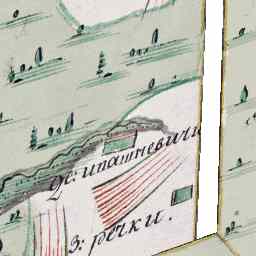 де: ипашневичи
з: речки.